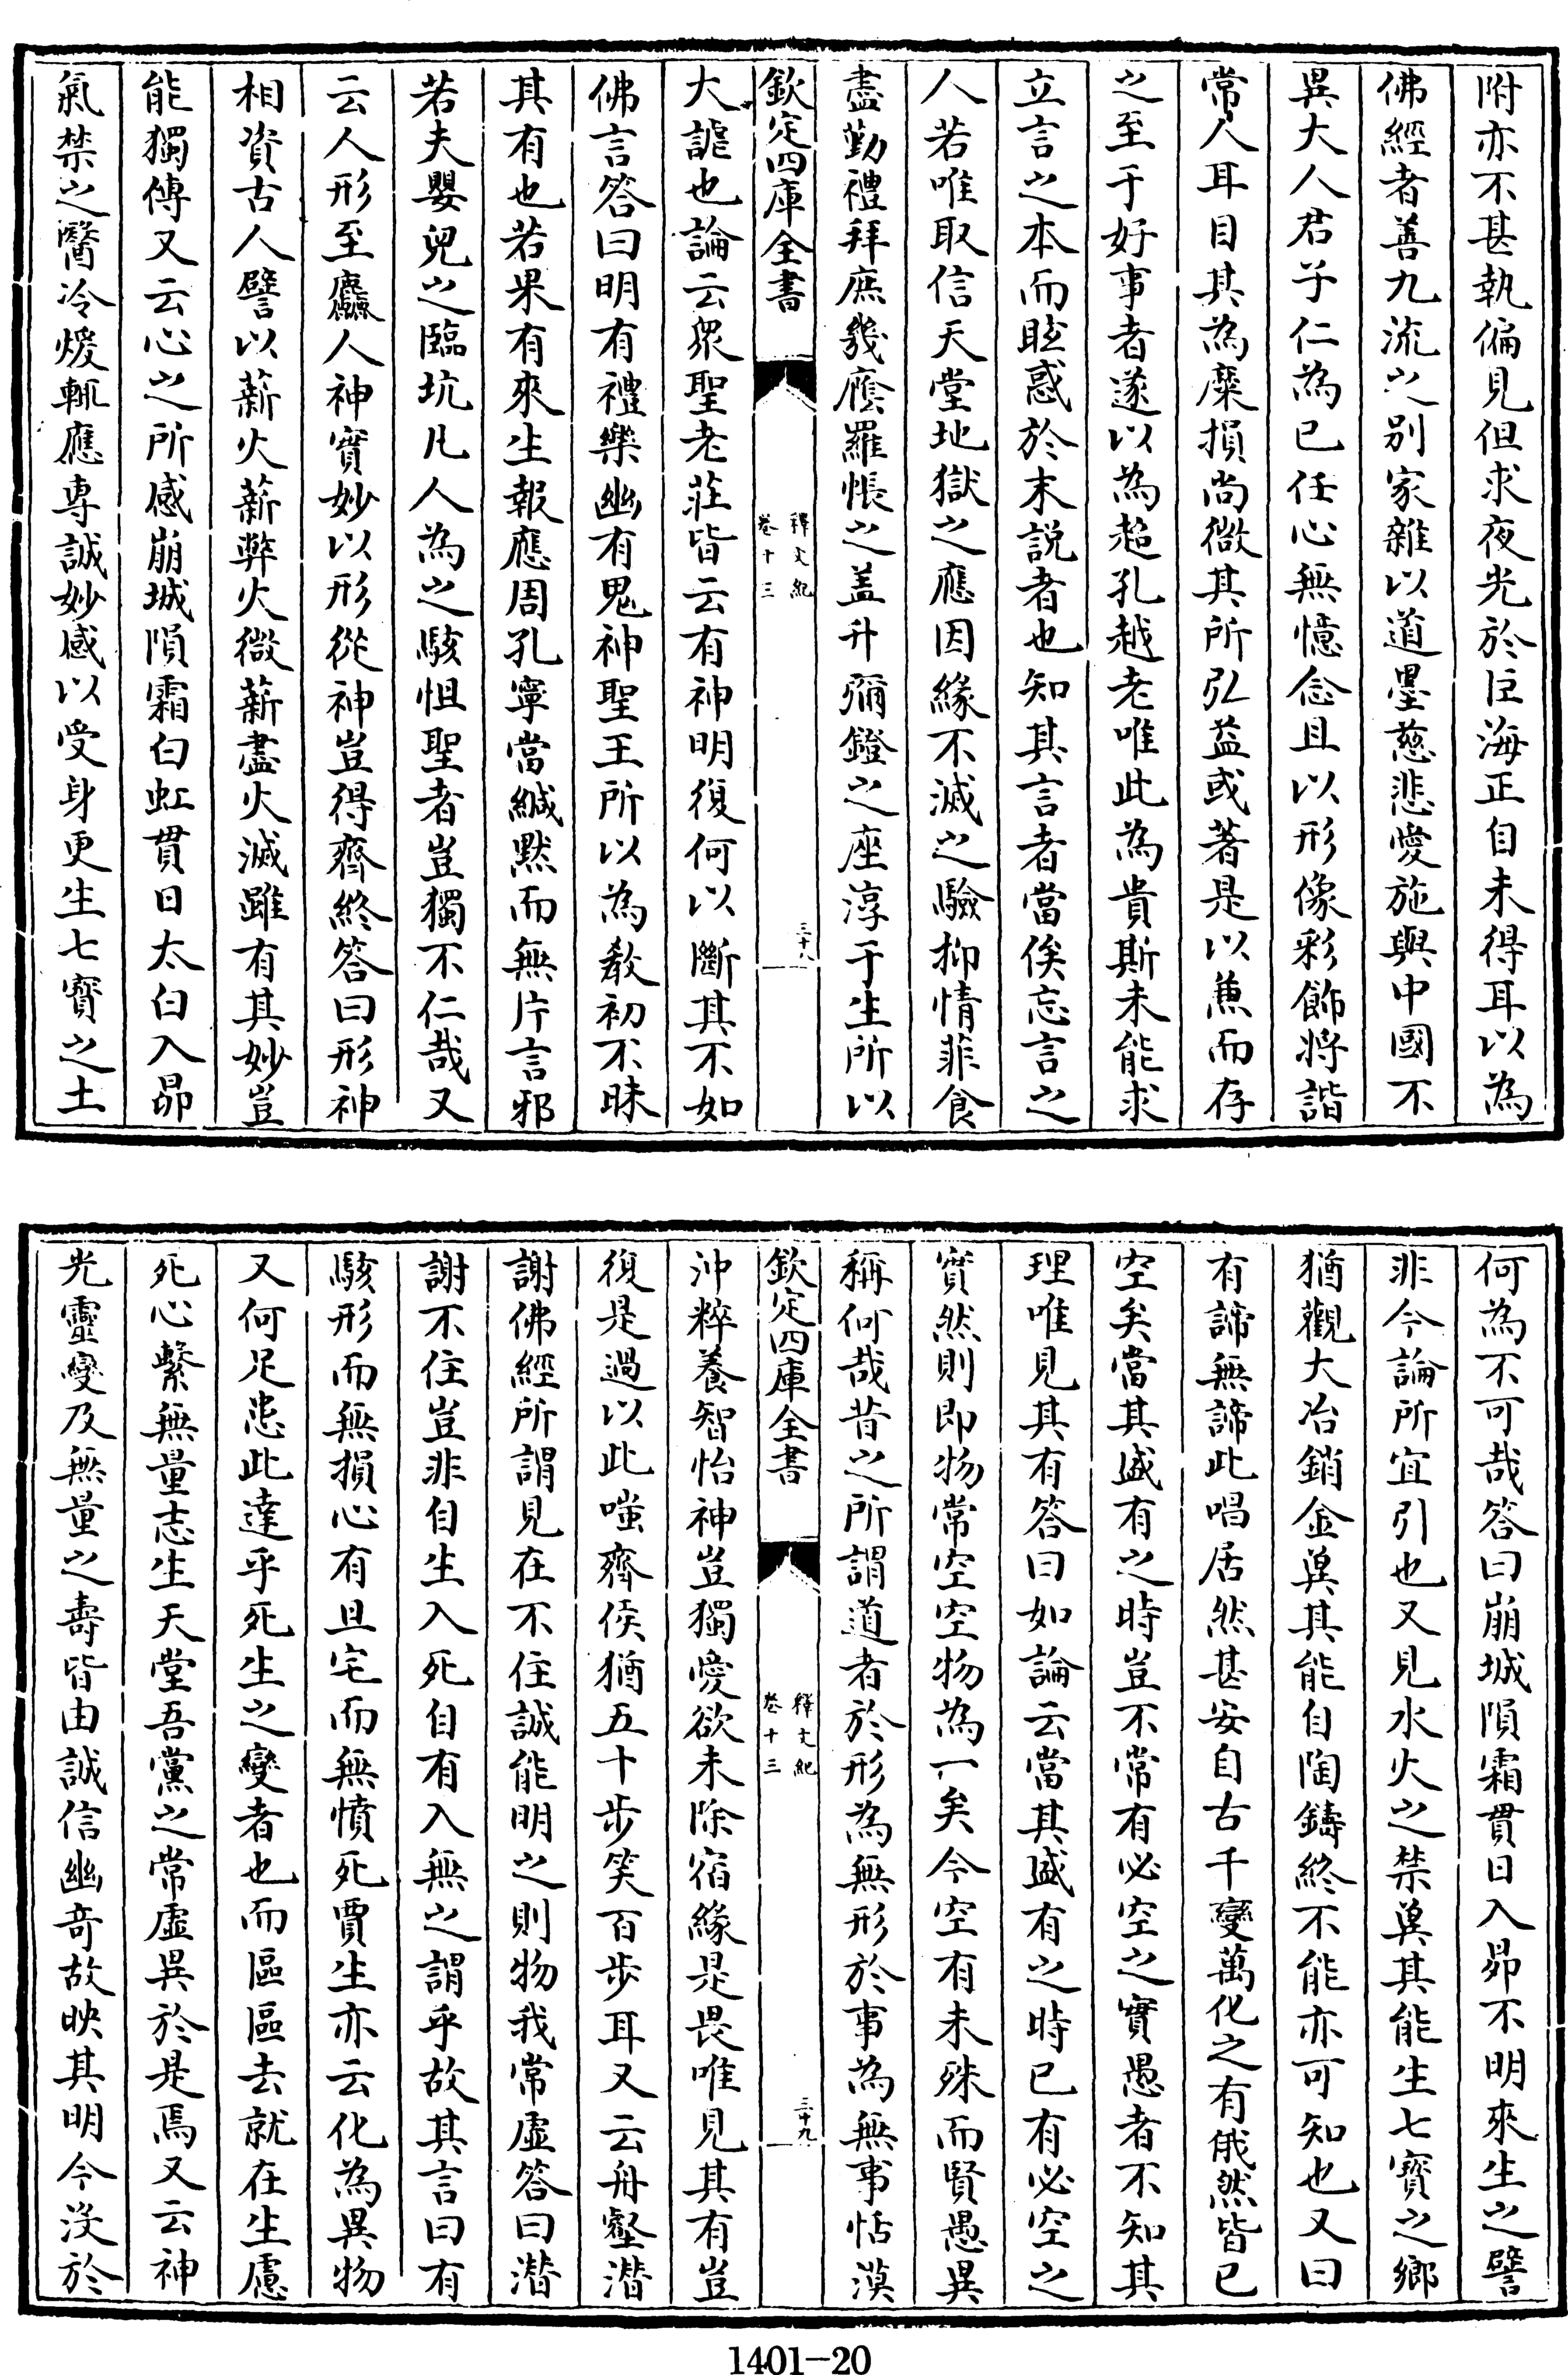 附亦不甚執偏見但求夜光於巨海正自未得耳以為
佛經者善九流之别家雜以道墨慈悲愛施與中國不
異大人君子仁為已任心無憶念且以形像彩飾將諧
常人耳目其為糜損尚微其所弘益或著是以兼而存
之至于好事者遂以為超孔越老唯此為貴斯未能求
立言之本而眩惑於末説者也知其言者當俟忘言之
人若唯取信天堂地獄之應因緣不滅之驗抑情菲食
盡勤禮拜庶幾廕羅帳之盖升彌鐙之座淳于生所以
欽定四庫全書
釋文紀
卷十三
三十八
大謔也論云衆聖老莊皆云有神明復何以斷其不如
佛言答曰明有禮樂幽有鬼神聖王所以為教初不昧
其有也若果有來生報應周孔寧當緘黙而無片言邪
若夫嬰兒之臨坑凡人為之駭怛聖者豈獨不仁哉又
云人形至麤人神實妙以形從神豈得齊終答曰形神
相資古人譬以薪火薪弊火微薪盡火滅雖有其妙豈
能獨傳又云心之所感崩城隕霜白虹貫日太白入昴
氣禁之醫冷煖輒應專誠妙感以受身更生七寳之土
何為不可哉答曰崩城隕霜貫日入昴不明來生之譬
非今論所宜引也又見水火之禁兾其能生七寳之鄉
猶觀大冶銷金兾其能自陶鑄終不能亦可知也又曰
有諦無諦此唱居然甚安自古千變萬化之有俄然皆已
空矣當其盛有之時豈不常有必空之實愚者不知其
理唯見其有答曰如論云當其盛有之時已有必空之
實然則即物常空空物為一矣今空有未殊而賢愚異
稱何哉昔之所謂道者於形為無形於事為無事恬漠
欽定四庫全書
釋文紀
卷十三
三十九
沖粹養智怡神豈獨愛欲未除宿緣是畏唯見其有豈
復是過以此嗤齊侯猶五十步笑百步耳又云舟壑潜
謝佛經所謂見在不住誠能明之則物我常虛答曰潜
謝不住豈非自生入死自有入無之謂乎故其言曰有
駭形而無損心有旦宅而無憤死賈生亦云化為異物
又何足患此達乎死生之變者也而區區去就在生慮
死心繫無量志生天堂吾黨之常虛異於是焉又云神
光靈變及無量之壽皆由誠信幽奇故映其明今没於
1401-20